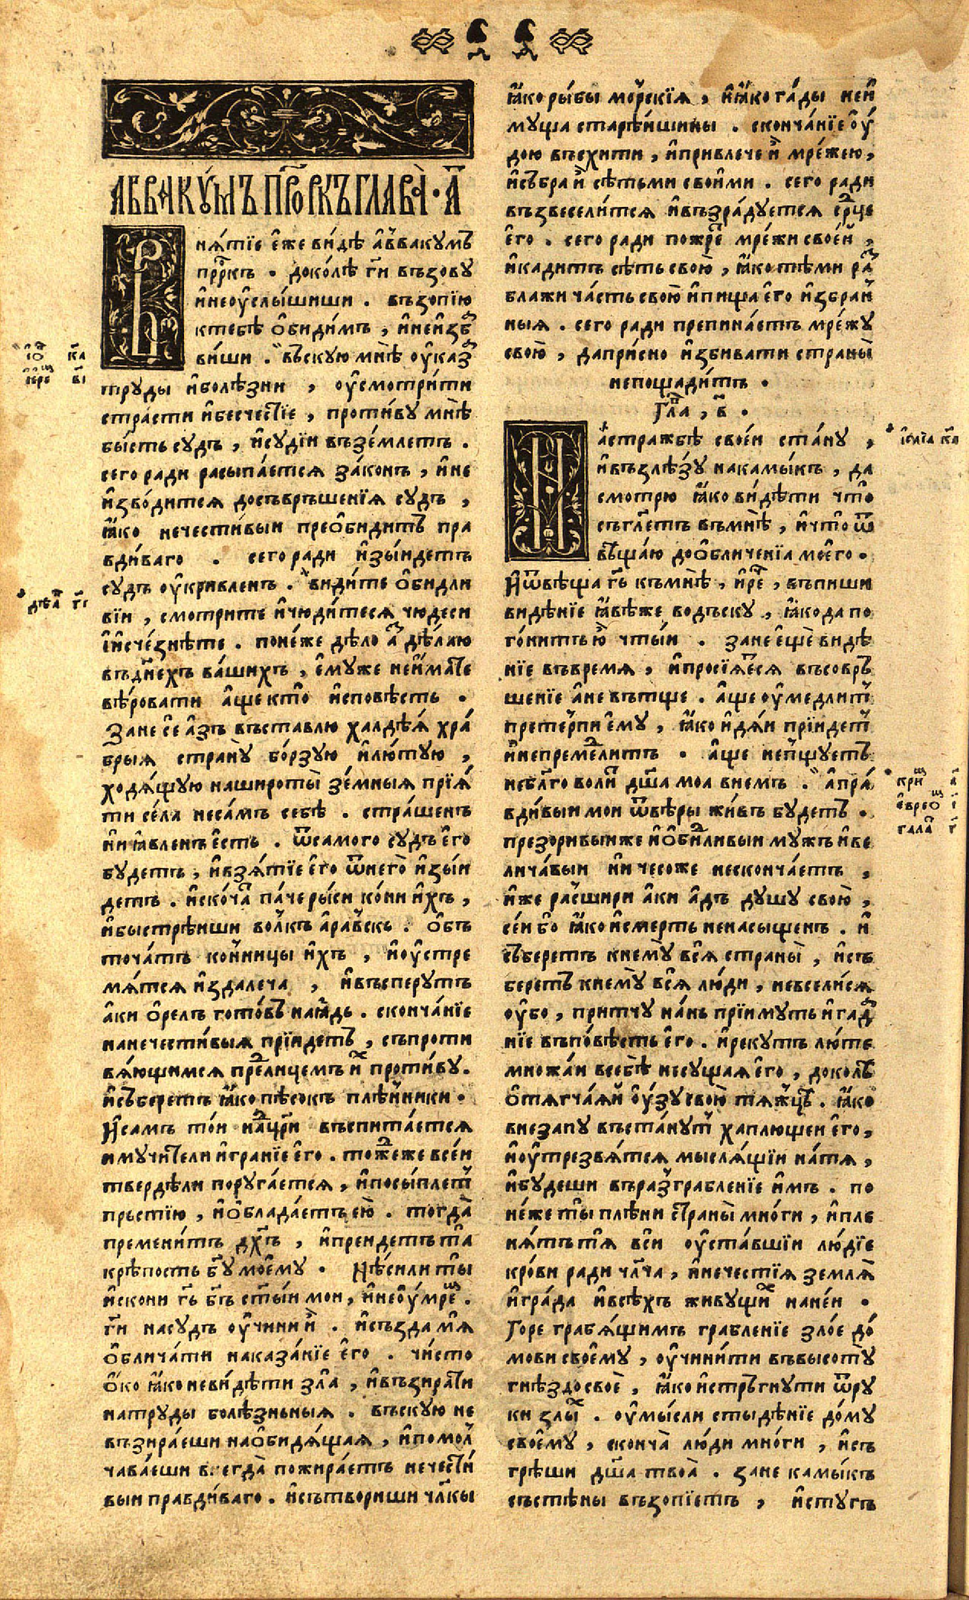 АВВАКꙋ́МЪ ПРⷪ҇РКЪ ГЛАВА̀ · А҃
Внѧ́тїе є҆́же ви́дѣ а҆ввакꙋмъ
прⷪ҇ркъ . доко́лѣ гⷭ҇и въ́зовꙋ
и҆неᲂу҆слы́шиши . възопїю
ктебѣ ѻ҆би́димъ , и҆неи҆зба
виши . въскꙋю мнѣ ᲂу҆каза
трꙋды и҆болѣзни , ᲂу҆смотри́ти
стра́сти и҆бесче́стїе , проти́вꙋ мнѣ
бы́сть сꙋдъ , и҆сꙋдїи въземлетъ .
сего ради расыпа́етсѧ зако́нъ , и҆не
и҆зво́дитсѧ досъвръшенїѧ сꙋдъ ,
ꙗ҆ко нечестивыи преѻ҆би́дитъ пра
вди́ваго . сегоради и҆зы́идетъ
сꙋдъ ᲂу҆кривленъ . ви́дите ѻ҆бидли
вїи , смотрите и҆чюди́тесѧ чюдеси
и҆и҆счезнѣте . понеже дѣло а҆зъ дѣлаю
въдне́хъ ва́шихъ , є҆мꙋже неи҆мате
вѣровати а҆ще кто̀ и҆сповѣсть .
Зане се а҆зъ въставлю халдѣѧ хра́
брыѧ странꙋ бо́рзꙋю и҆лютꙋю ,
ходѧ́щꙋю нашироты̀ зе́мныѧ прїѧ́
ти се́ла неса́мъ себѣ . стра́шенъ
и҆ꙗ҆вленъ є҆сть . ѿсамого сꙋдъ є҆го
бꙋдетъ , и҆взѧ́тїе є҆го ѿнего и҆зы́и
детъ . и҆ско́чатъ па́че ры́си ко́ни и҆хъ ,
и҆быстрѣиши во́лкъ а҆ра́вскъ . ѻ҆бъ
точа́тъ ко́нницы и҆хъ , и҆ᲂу҆стре
мѧтсѧ и҆здалеча , и҆въсперꙋтъ
а҆ки ѻ҆ре́лъ гото́въ наꙗ҆дь . сконча́нїе
нанечести́выѧ прїи́детъ , съпроти
вѧющимсѧ прелицемъ и҆хъ проти́вꙋ .
и҆събере́тъ ꙗ҆ко пѣсокъ плѣ́нники .
И҆самъ то́и нацр҃и въспитаетсѧ
и҆мꙋчи́тели и҆граніе є҆го . тойже все́и
тверде́ли порꙋга́етсѧ , и҆посы́плетъ
прьстїю , и҆ѻ҆блада́етъ є҆ю . тогда̀
премени́тъ дх҃ъ , и҆преи́детъ та
крѣпость бг҃ꙋ моемꙋ . Неси́ли ты
и҆скони гь҃ бг҃ъ ст҃ы́и мои , и҆неᲂу҆мрещи .
гⷭ҇и насꙋдъ ᲂу҆чини и҆ . и҆създа мѧ̀
ѻ҆блича́ти наказа́нїе є҆го . чи́сто
ѻ҆́ко ꙗ҆ко неви́дѣти зла̀ , и҆възира́ти
натрꙋды болѣ́зньныѧ . въскꙋю не
възира́еши наѻ҆бидѧ́щаѧ , и҆помол
чава́еши всегда̀ пожира́етъ нечести́
выи правди́ваго . и҆сътвориши чл҃кы
ꙗ҆ко ры́бы мо́рскїѧ , и҆ꙗ҆ко га́ды неи҆
мꙋща старѣ́ишины . сконча́нїе ᲂу҆́
дою въсхити , и҆привлече и҆ мрежею ,
и҆събра и҆ сѣ́тьми свои́ми . сего ради
възвеселитсѧ и҆възра́дꙋетсѧ срⷣце
є҆го . сего ради пожре мре́жи свое́и ,
и҆кадитъ сѣть свою̀ , ꙗ҆ко тѣми раз
блажи ча́сть свою̀ и҆пища є҆го и҆збран
ныѧ . сего ради препина́етъ мре́жꙋ
свою̀ , даприсно и҆збивати страны̀
непощади́тъ .
Гл҃а , в҃ .
На стражбѣ свое́и ста́нꙋ ,
и҆възлѣ́зꙋ нака́мыкъ , да
смотрю ꙗ҆ко ви́дѣти что̀
съгл҃етъ въмнѣ , и҆что ѿ
вѣща́ю доѻ҆бличенїа моего̀ .
И҆ѿвѣща гь҃ къмнѣ , и҆рече , въпиши
ви́дѣніе ꙗ҆вѣже водъскꙋ , ꙗ҆кода по
го́нитъ ю҆ чты́и . зане є҆щѐ видѣ
нїе въвремѧ , и҆просїѧ́етсѧ въсовръ
шенїе а҆не въ́тще . а҆ще ᲂу҆ме́длитъ
претерпи є҆мꙋ , ꙗ҆ко и҆дѧ́и прїидетъ
и҆непремедлитъ . а҆ще непщꙋетъ
небл҃го волитъ дш҃а моа внемъ . а҆пра
вди́выи мои ѿвѣры жи́въ бꙋдетъ .
презоривы́иже и҆ѻ҆бидливыи мꙋжъ и҆ве
лича́выи ничесоже несконча́етъ ,
и҆же расшири а҆ки а҆дъ дꙋшꙋ свою̀ ,
се́и бо ꙗ҆ко и҆смерть ненасыщенъ . и҆
съберетъ кнемꙋ̀ всѧ̀ страны̀ , и҆съ
беретъ кнемꙋ̀ всѧ̀ лю́ди , невселисѧ
ᲂу҆бо , притчꙋ на́нь прїимꙋть и҆гада
нїе въповѣсть є҆го . и҆рекꙋтъ лютѣ
множа́и всебѣ несꙋщаѧ є҆го , доколѣ
ѻ҆тѧгча́ѧи ᲂу҆зꙋ свою̀ тѧжцѣ . ꙗ҆ко
внезапꙋ въста́нꙋтъ хаплющеи є҆го ,
и҆ᲂу҆трезвѧтсѧ мыслѧ́щїи на́тѧ ,
и҆бꙋдеши въразграбленїе и҆мъ . по
не́же ты плѣ́ни страны̀ мно́ги , и҆плѣ
нѧтъ тѧ вси ᲂу҆ста́вшїи лю́дїе
кро́ви ради чл҃ча , и҆нечестїѧ землѧ̀
и҆гра́да и҆всѣ́хъ живꙋщихъ нане́и .
Горе грабѧ́щимъ грабленїе зло́е до́
мови своемꙋ , ᲂу҆чини́ти въвысо́тꙋ
гнѣздо свое , ꙗ҆ко и҆стръгнꙋти ѿрꙋ
ки злы́хъ . ᲂу҆мысли стыдѣніе до́мꙋ
своемꙋ , сконча̀ лю́ди мно́ги , и҆съ
грѣши дш҃а твоа̀ . за́не ка́мыкъ
състѣны възопїетъ , и҆стꙋгъ
дѣѧ гі
исаїа ка
евреѡ і
гала г